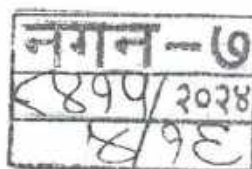 नगन - ७
८४१५/२०२४
४/१६